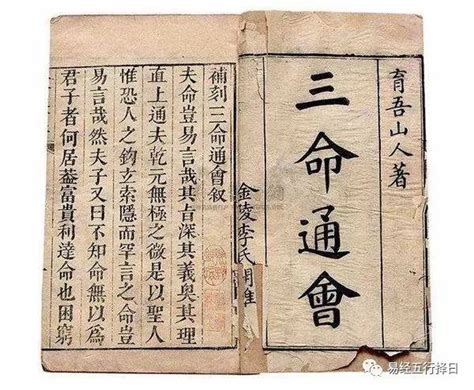 育吾山人著
三命通會
金陵李氏
補刻三命通會叙
夫命豈易言哉其旨深其義奥其理
直上通夫乾元無極之微是以聖人
惟恐人之鈎玄索隱而罕言之命豈
易言哉然夫子又曰不知命無以爲
君子者何居葢富貴利達命也困窮
易经五行择日